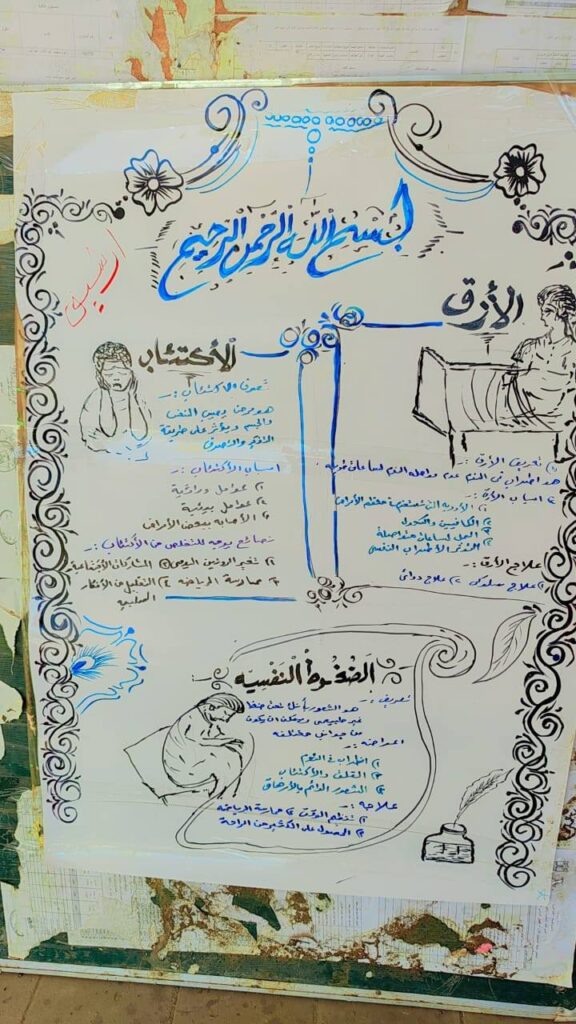 بسم الله الرحمن الرحيم
الأرق
١) تعريف الأرق :-
هو اضطراب في النوم عدم مواصلة النوم لساعات
٢ اسباب الأرق :-
١) الأدوية التي تستخدم
٢) الكافيين والكحول
٣) العمل لساعات متواصلة
٤) التوتر الاضطراب النفسي
علاج الأرق :-
١) علاج سلوكي ٢) علاج دوائي
الأكتئاب
تعريف الاكتئاب :-
هو مرض يصيب النفس
والجسم ويؤثر على طريقة
التفكير والتصرف
اسباب الأكتئاب :-
١) عوامل وراثية
٢) عوامل بيئية
٣) الأصابه ببعض الأمراض
نصائح يوميه للتخلص من الأكتئاب :-
١) تغير الروتين اليومي ٢) المشاركات الإجتماعية
٣) ممارسة الرياضه ٤) التقليل من الأفكار
السلبيه
الضغوط النفسيه
تعريف :-
هو الشعور بأننا تحت ضغط
غير طبيعي ويمكن ان يكون
من جوانب مختلفه
اعراضه :-
١) اضطراب في النوم
٢) القلق والأكتئاب
٣) الشعور الدائم بالأرهاق
علاجه :-
١) تنظيم الوقت ٢) ممارسة الرياضه
٣) الحصول على الكثير من الراحة